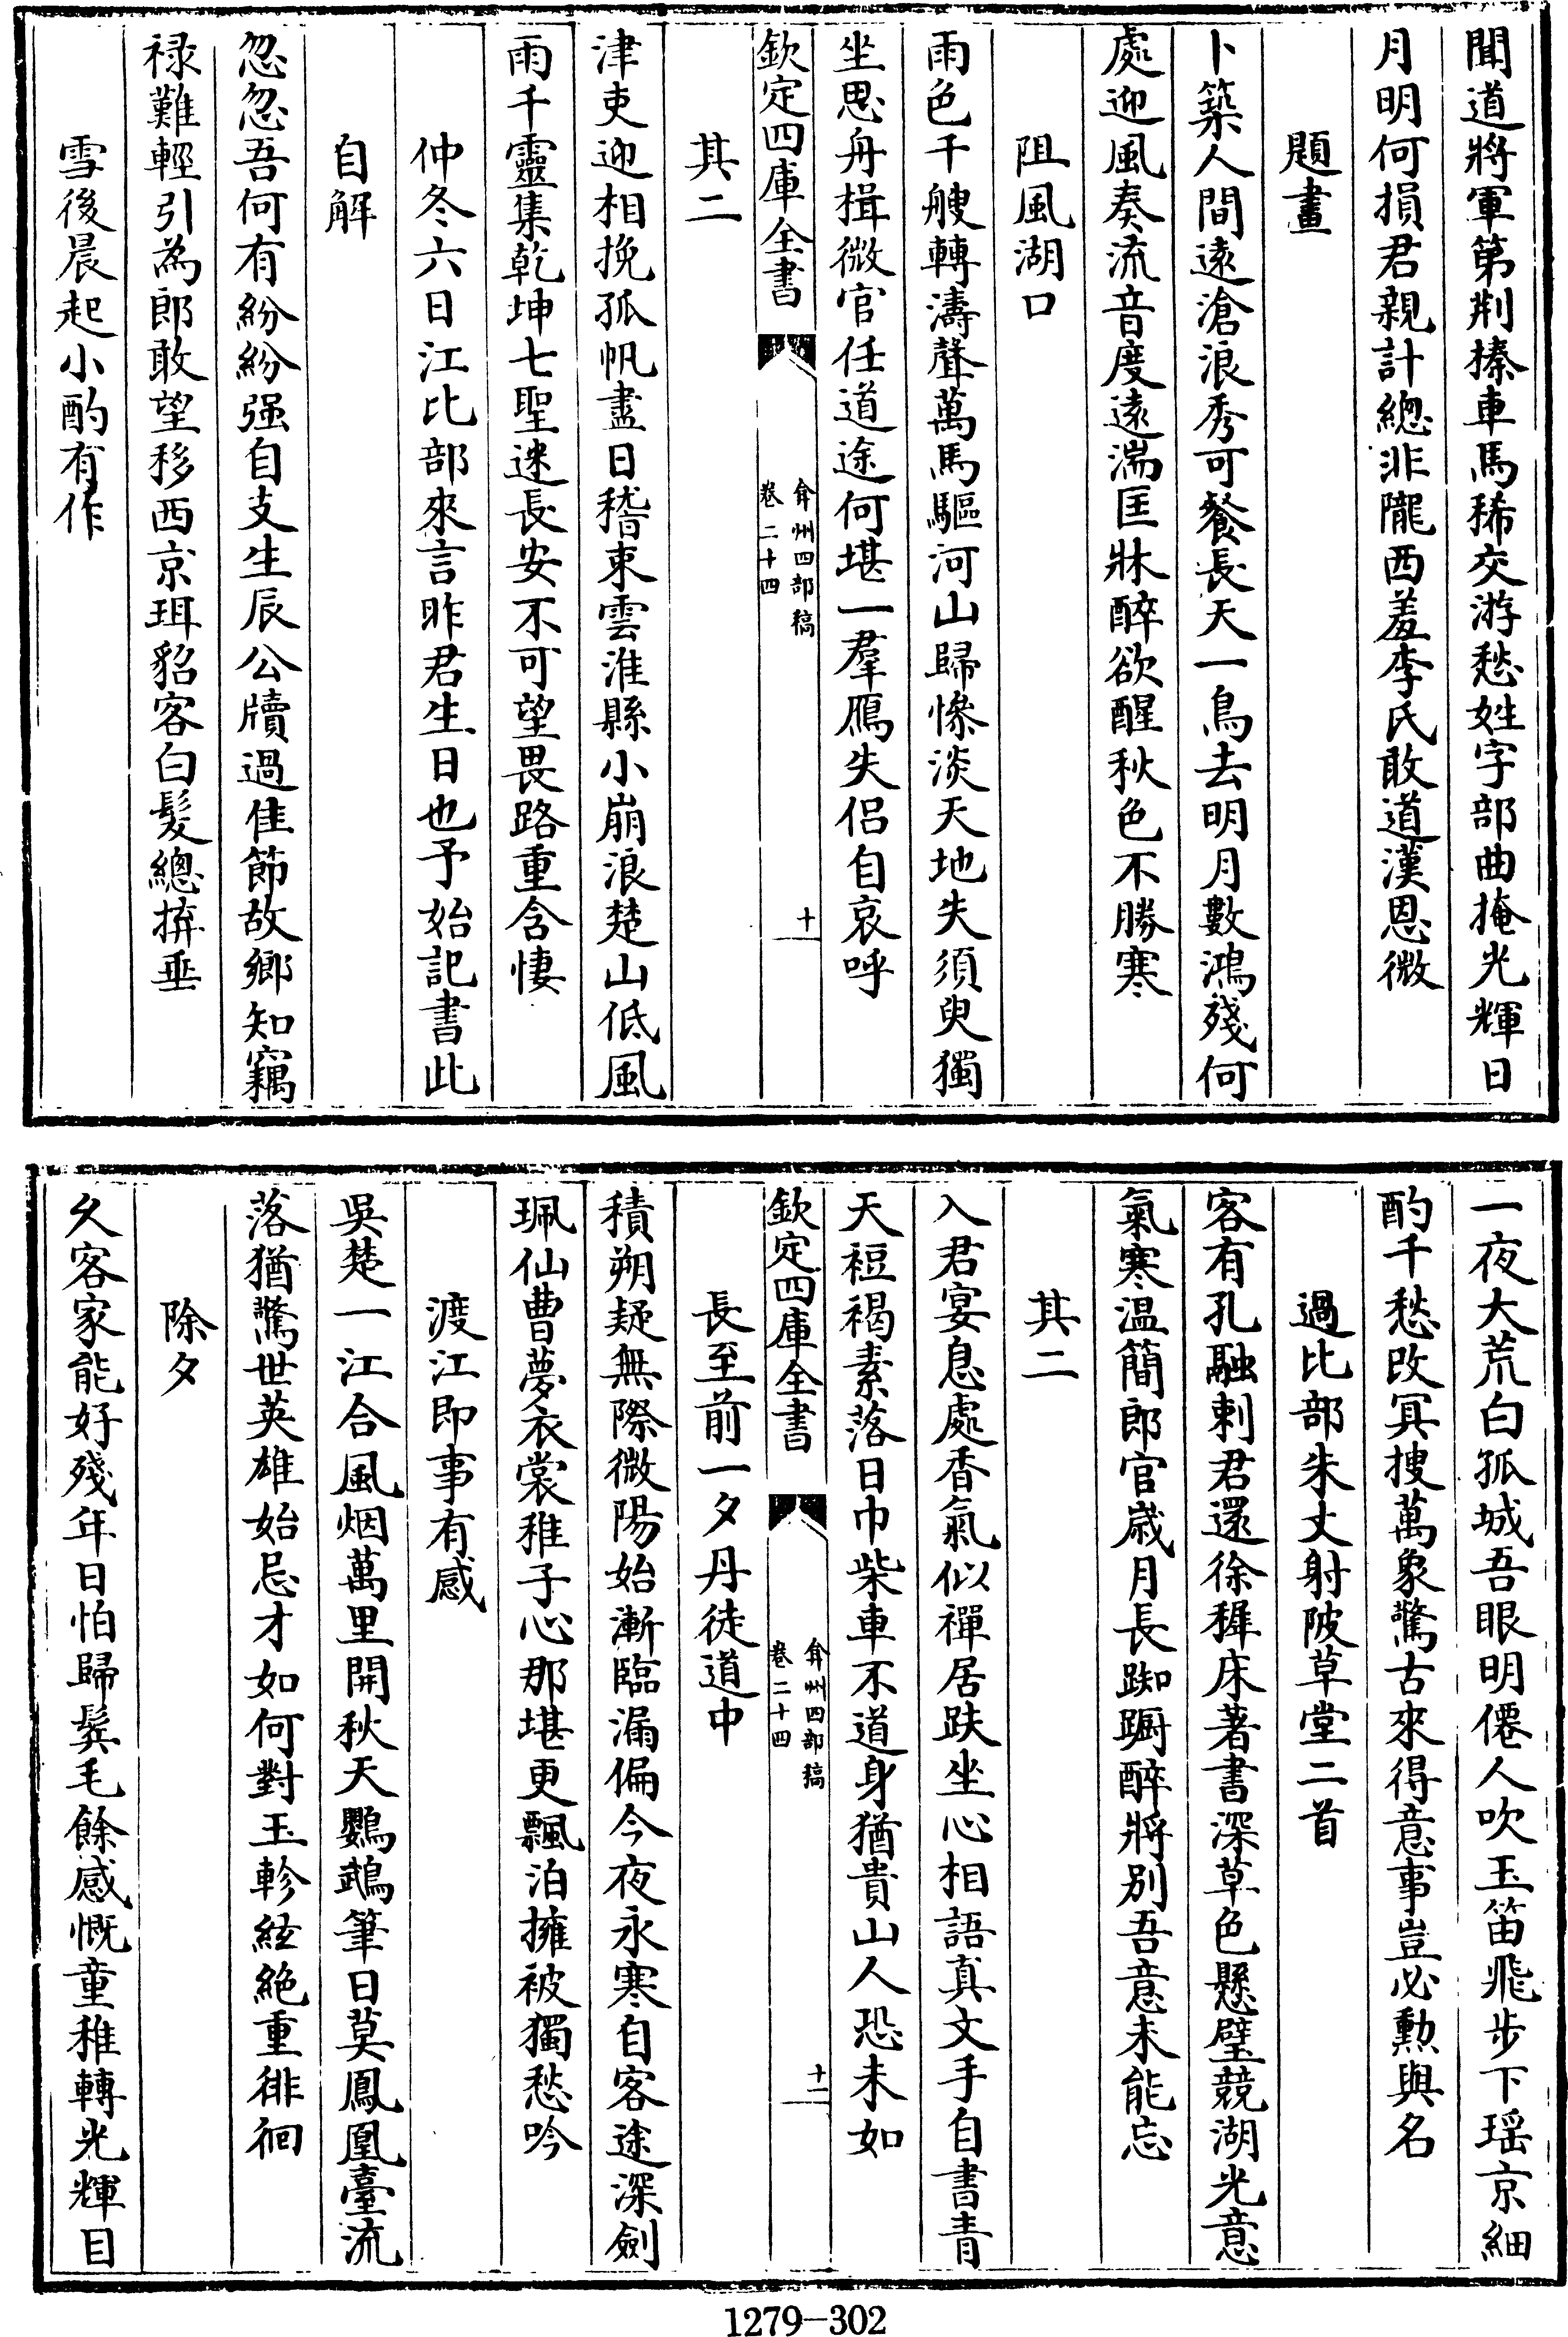 聞道將軍第荆榛車馬稀交游愁姓字部曲掩光輝日
月明何損君親計總非隴西羞李氏敢道漢恩微
題畫
卜築人間逺滄浪秀可餐長天一鳥去明月數鴻殘何
處迎風奏流音度逺湍匡牀醉欲醒秋色不勝寒
阻風湖口
雨色千艘轉濤聲萬馬驅河山歸慘淡天地失須臾獨
坐思舟楫微官任道途何堪一羣鴈失侶自哀呼
欽定四庫全書
弇州四部稿
卷二十四
十
其二
津吏迎相挽孤帆盡日稽束雲淮縣小崩浪楚山低風
雨千靈集乾坤七聖迷長安不可望畏路重含悽
仲冬六日江比部來言昨君生日也予始記書此
自解
忽忽吾何有紛紛强自支生辰公牘過佳節故鄉知竊
禄難輕引為郎敢望移西京珥貂客白髮總拚垂
雪後晨起小酌有作
一夜大荒白孤城吾眼明僊人吹玉笛飛步下瑶京細
酌千愁改冥搜萬象驚古來得意事豈必勲與名
過比部朱丈射陂草堂二首
客有孔融刺君還徐穉床著書深草色懸璧競湖光意
氣寒温簡郎官歲月長踟蹰醉將别吾意未能忘
其二
入君宴息處香氣似禪居趺坐心相語真文手自書青
天裋褐素落日巾柴車不道身猶貴山人恐未如
欽定四庫全書
弇州四部稿
卷二十四
十一
長至前一夕丹徒道中
積朔疑無際微陽始漸臨漏偏今夜永寒自客途深劍
珮仙曹夢衣裳稚子心那堪更飄泊擁被獨愁吟
渡江即事有感
吳楚一江合風烟萬里開秋天鸚鵡筆日莫鳳凰臺流
落猶驚世英雄始忌才如何對玉軫絃絶重徘徊
除夕
久客家能好殘年日怕歸鬂毛餘感慨童稚轉光輝目
1279-302